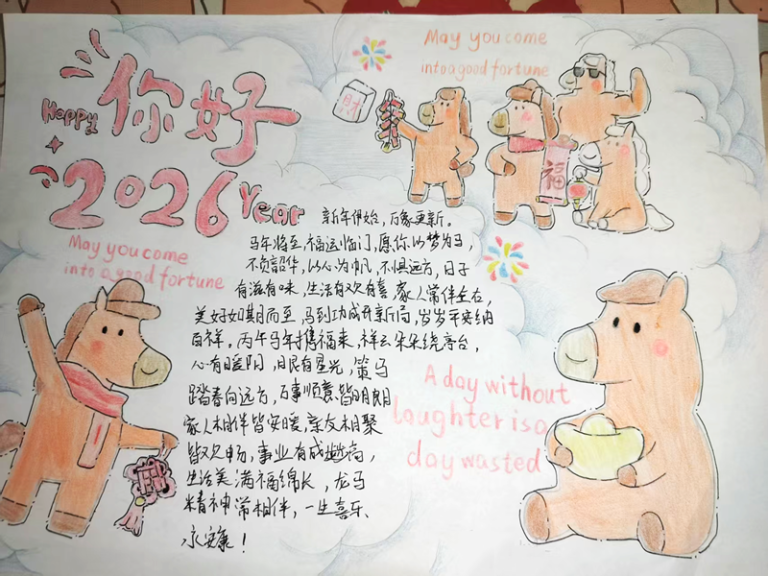 May you come
into a good fortune
Happy
你好
2026 Year
财
福
新年伊始，万象更新。
马年将至，福运临门，愿你以梦为马，
不负韶华，以心为帆，不惧远方，日子
有滋有味，生活有欢有喜，家人常伴左右，
美好如期而至，马到功成开新局，岁岁平安纳
百祥。丙午马年携福来，祥云朵朵绕亭台，
心有暖阳，目有星光，策马
踏春向远方，万事顺意皆明朗
家人相伴皆安暖，亲友相聚
皆欢畅，事业有成步步高，
生活美满福绵长，龙马
精神常相伴，一生喜乐、
永安康！
May you come
into a good fortune
A day without
laughter is a
day wasted